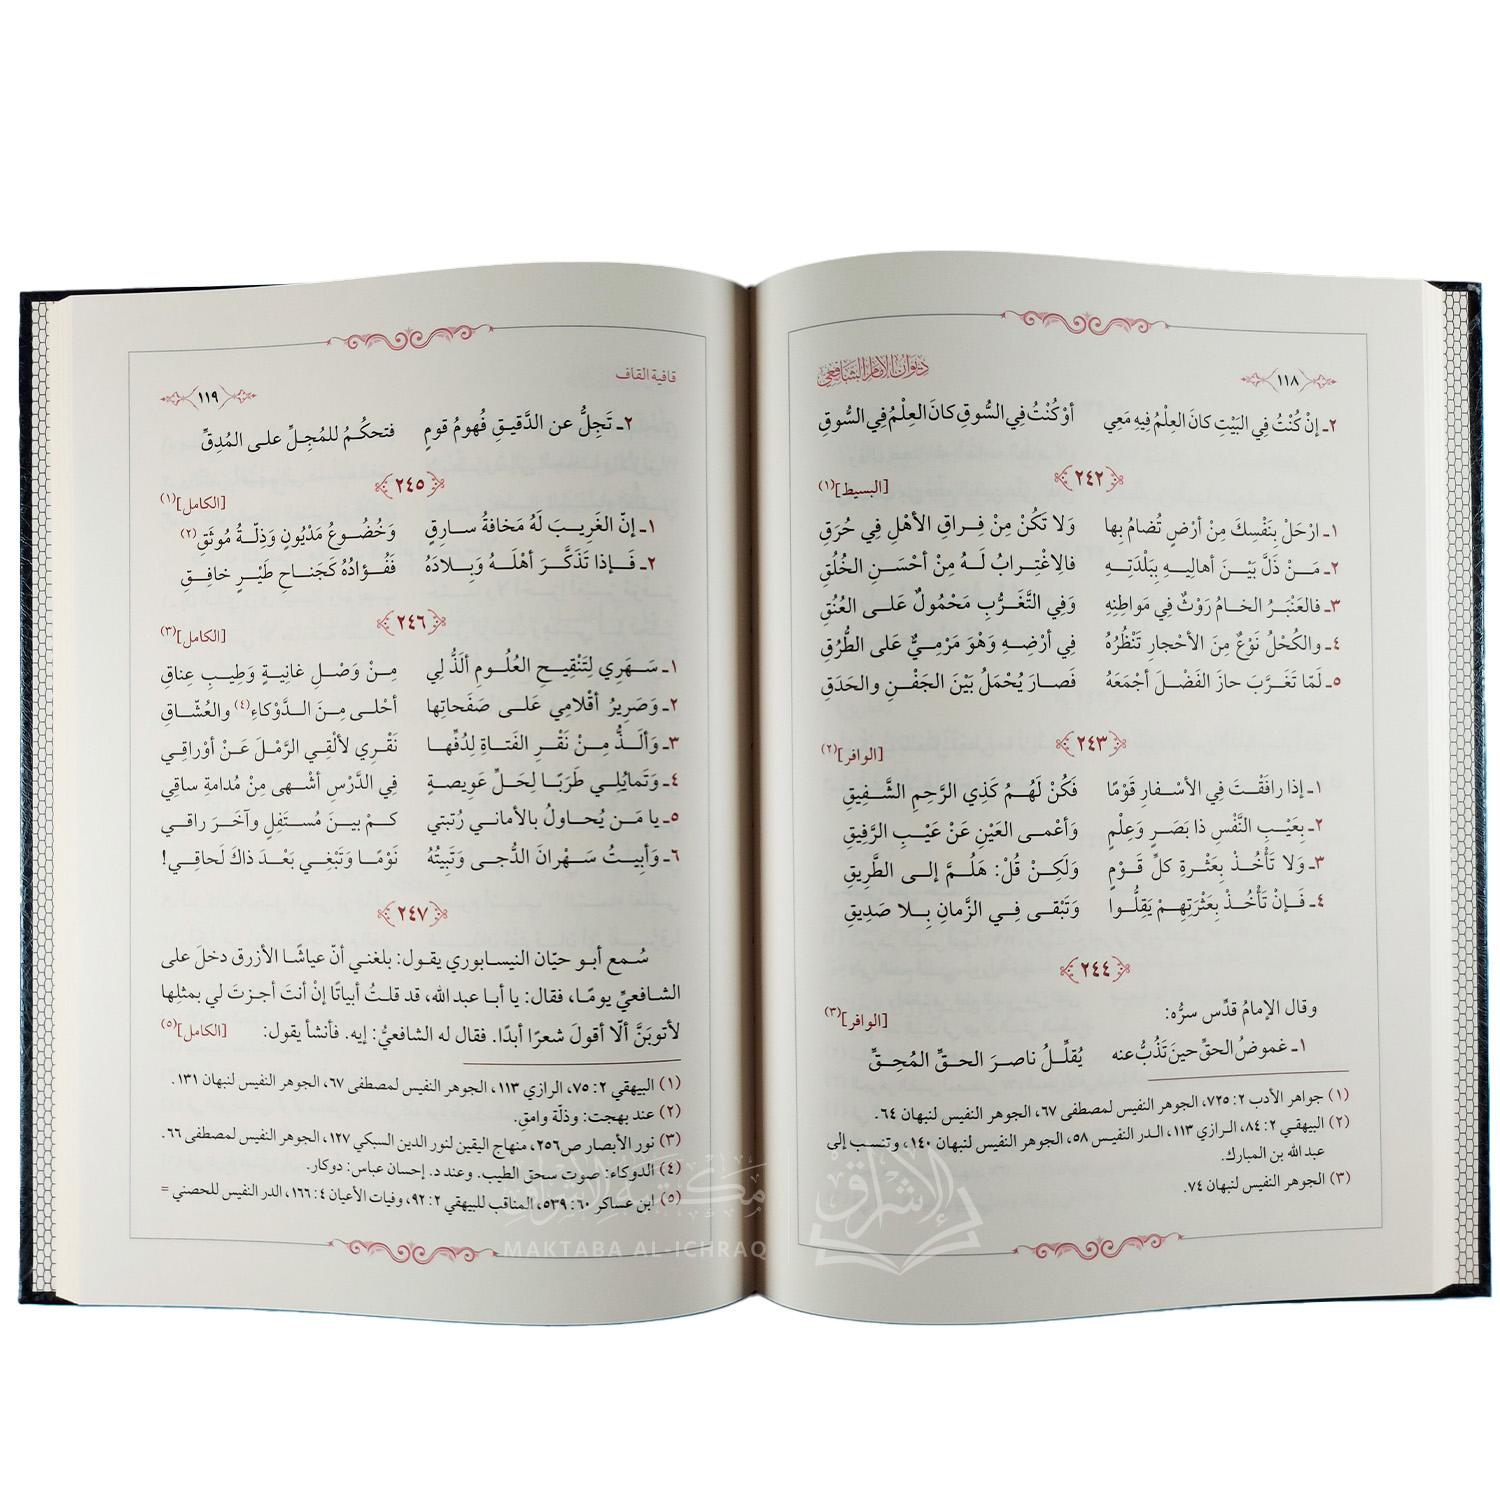 ١١٨ ديوان الإمام الشافعي
٢ـ إنْ كُنْتُ فِي البَيْتِ كانَ العِلْمُ فِيهِ مَعِي أوْ كُنْتُ فِي السُّوقِ كانَ العِلْمُ فِي السُّوقِ
٢٤٢
[البسيط](١)
١ـ ارْحَلْ بِنَفْسِكَ مِنْ أرْضٍ تُضامُ بِها وَلا تَكُنْ مِنْ فِراقِ الأهْلِ فِي حُرَقِ
٢ـ مَـنْ ذَلَّ بَيْـنَ أهالِيـهِ بِبَلْدَتِـهِ فالِاغْتِـرابُ لَـهُ مِنْ أحْسَنِ الخُلُقِ
٣ـ فالعَنْبَـرُ الخـامُ رَوْثٌ فِي مَواطِنِهِ وَفِي التَّغَرُّبِ مَحْمُولٌ عَلَـى العُنُقِ
٤ـ والكُحْلُ نَوْعٌ مِنَ الأحْجارِ تَنْظُرُهُ فِي أرْضِـهِ وَهْوَ مَرْمِيٌّ عَلَى الطُّرُقِ
٥ـ لَمّا تَغَـرَّبَ حازَ الفَضْـلَ أجْمَعَهُ فَصـارَ يُحْمَلُ بَيْنَ الجَفْـنِ والحَدَقِ
٢٤٣
[الوافر](٢)
١ـ إذا رافَقْـتَ فِي الأسْـفارِ قَوْمًا فَكُنْ لَهُمُ كَذِي الرَّحِمِ الشَّفِيقِ
٢ـ بِعَيْبِ النَّفْسِ ذا بَصَرٍ وَعِلْمٍ وَأعْمى العَيْنِ عَنْ عَيْبِ الرَّفِيقِ
٣ـ وَلا تَأْخُـذْ بِعَثْرةِ كلِّ قَـوْمٍ وَلَكِـنْ قُلْ: هَلُمَّ إلى الطَّرِيقِ
٤ـ فَـإنْ تَأْخُـذْ بِعَثْرَتِهِـمْ يَقِلُّـوا وَتَبْقى فِـي الزَّمانِ بِـلا صَدِيقِ
٢٤٤
وقال الإمامُ قدِّس سرُّه:
[الوافر](٣)
١ـ غموضُ الحقِّ حينَ تَذُبُّ عنه يُقلِّـلُ ناصرَ الحـقِّ المُحِـقِّ
(١) جواهر الأدب ٢: ٧٢٥، الجوهر النفيس لمصطفى ٦٧، الجوهر النفيس لنبهان ٦٤.
(٢) البيهقي ٢: ٨٤، الرازي ١١٣، الدر النفيس ٥٨، الجوهر النفيس لنبهان ١٤٠، وتنسب إلى
عبد الله بن المبارك.
(٣) الجوهر النفيس لنبهان ٧٤.
قافية القاف ١١٩
٢ـ تَجِلُّ عن الدَّقيقِ فُهومُ قومٍ فتحكُمُ للمُجِلِّ على المُدِقِّ
٢٤٥
[الكامل](١)
١ـ إنّ الغَرِيـبَ لَهُ مَخافةُ سـارِقٍ وَخُضُـوعُ مَدْيُونٍ وَذِلّـةُ مُوثَقِ(٢)
٢ـ فَـإذا تَذَكَّـرَ أهْلَـهُ وَبِـلادَهُ فَفُـؤادُهُ كَجَناحِ طَيْـرٍ خافِـقِ
٢٤٦
[الكامل](٣)
١ـ سَـهَرِي لِتَنْقِيـحِ العُلُـومِ ألَذُّ لِي مِـنْ وَصْـلِ غانِيـةٍ وَطِيبِ عِناقِ
٢ـ وَصَرِيرُ أقْلامِي عَلـى صَفَحاتِها أحْلـى مِـنَ الـدَّوْكاءِ(٤) والعُشّـاقِ
٣ـ وَألَـذُّ مِـنْ نَقْـرِ الفَتـاةِ لِدُفِّهـا نَقْرِي لألْقِي الرَّمْلَ عَنْ أوْراقِي
٤ـ وَتَمايُلِـي طَرَبًـا لِحَـلِّ عَوِيصـةٍ فِي الدَّرْسِ أشْهى مِنْ مُدامةِ ساقِي
٥ـ يا مَـن يُحـاولُ بالأمانـي رُتبتي كـمْ بيـنَ مُسـتَفِلٍ وآخَـرَ راقـي
٦ـ وَأبِيـتُ سَـهْرانَ الدُّجـى وَتَبِيتُهُ نَوْمًـا وَتَبْغِـي بَعْـدَ ذاكَ لَحاقِي!
٢٤٧
سُمع أبـو حيّان النيسابوري يقول: بلغني أنّ عياشًا الأزرق دخلَ على
الشافعيِّ يومًا، فقال: يا أبا عبد الله، قد قلتُ أبياتًا إنْ أنتَ أجزتَ لي بمثلِها
لأتوبَنَّ ألّا أقولَ شعرًا أبدًا. فقال له الشافعيُّ: إيه. فأنشأ يقول: [الكامل](٥)
(١) البيهقي ٢: ٧٥، الرازي ١١٣، الجوهر النفيس لمصطفى ٦٧، الجوهر النفيس لنبهان ١٣١.
(٢) عند بهجت: وذلّة وامقِ.
(٣) نور الأبصار ص٢٥٦، منهاج اليقين لنور الدين السبكي ١٢٧، الجوهر النفيس لمصطفى ٦٦.
(٤) الدوكاء: صوت سحق الطيب. وعند د. إحسان عباس: دوكار.
(٥) ابن عساكر ٦٠: ٥٣٩، المناقب للبيهقي ٢: ٩٢، وفيات الأعيان ٤: ١٦٦، الدر النفيس للحصني =
مكتبة الإشراق
MAKTABA AL-ICHRAQ
الإشراق